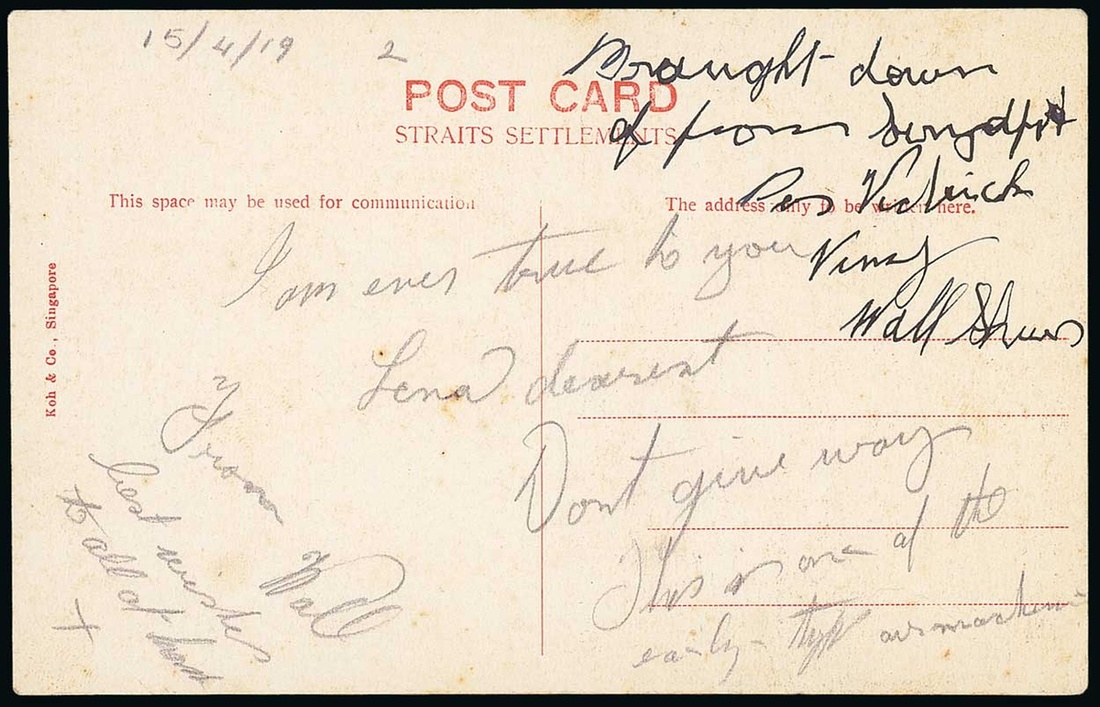 15/4/19 2
Braught down
of from
Per
Vimy
Wall
POST CARD
STRAITS SETTLEMENTS
This space may be used for communication
The address only to be written here.
Koh & Co., Singapore
I am ever true to you
Lena dearest
Dont give way
This is one of the
early type
From
Wall
best wishes
to all at home
X